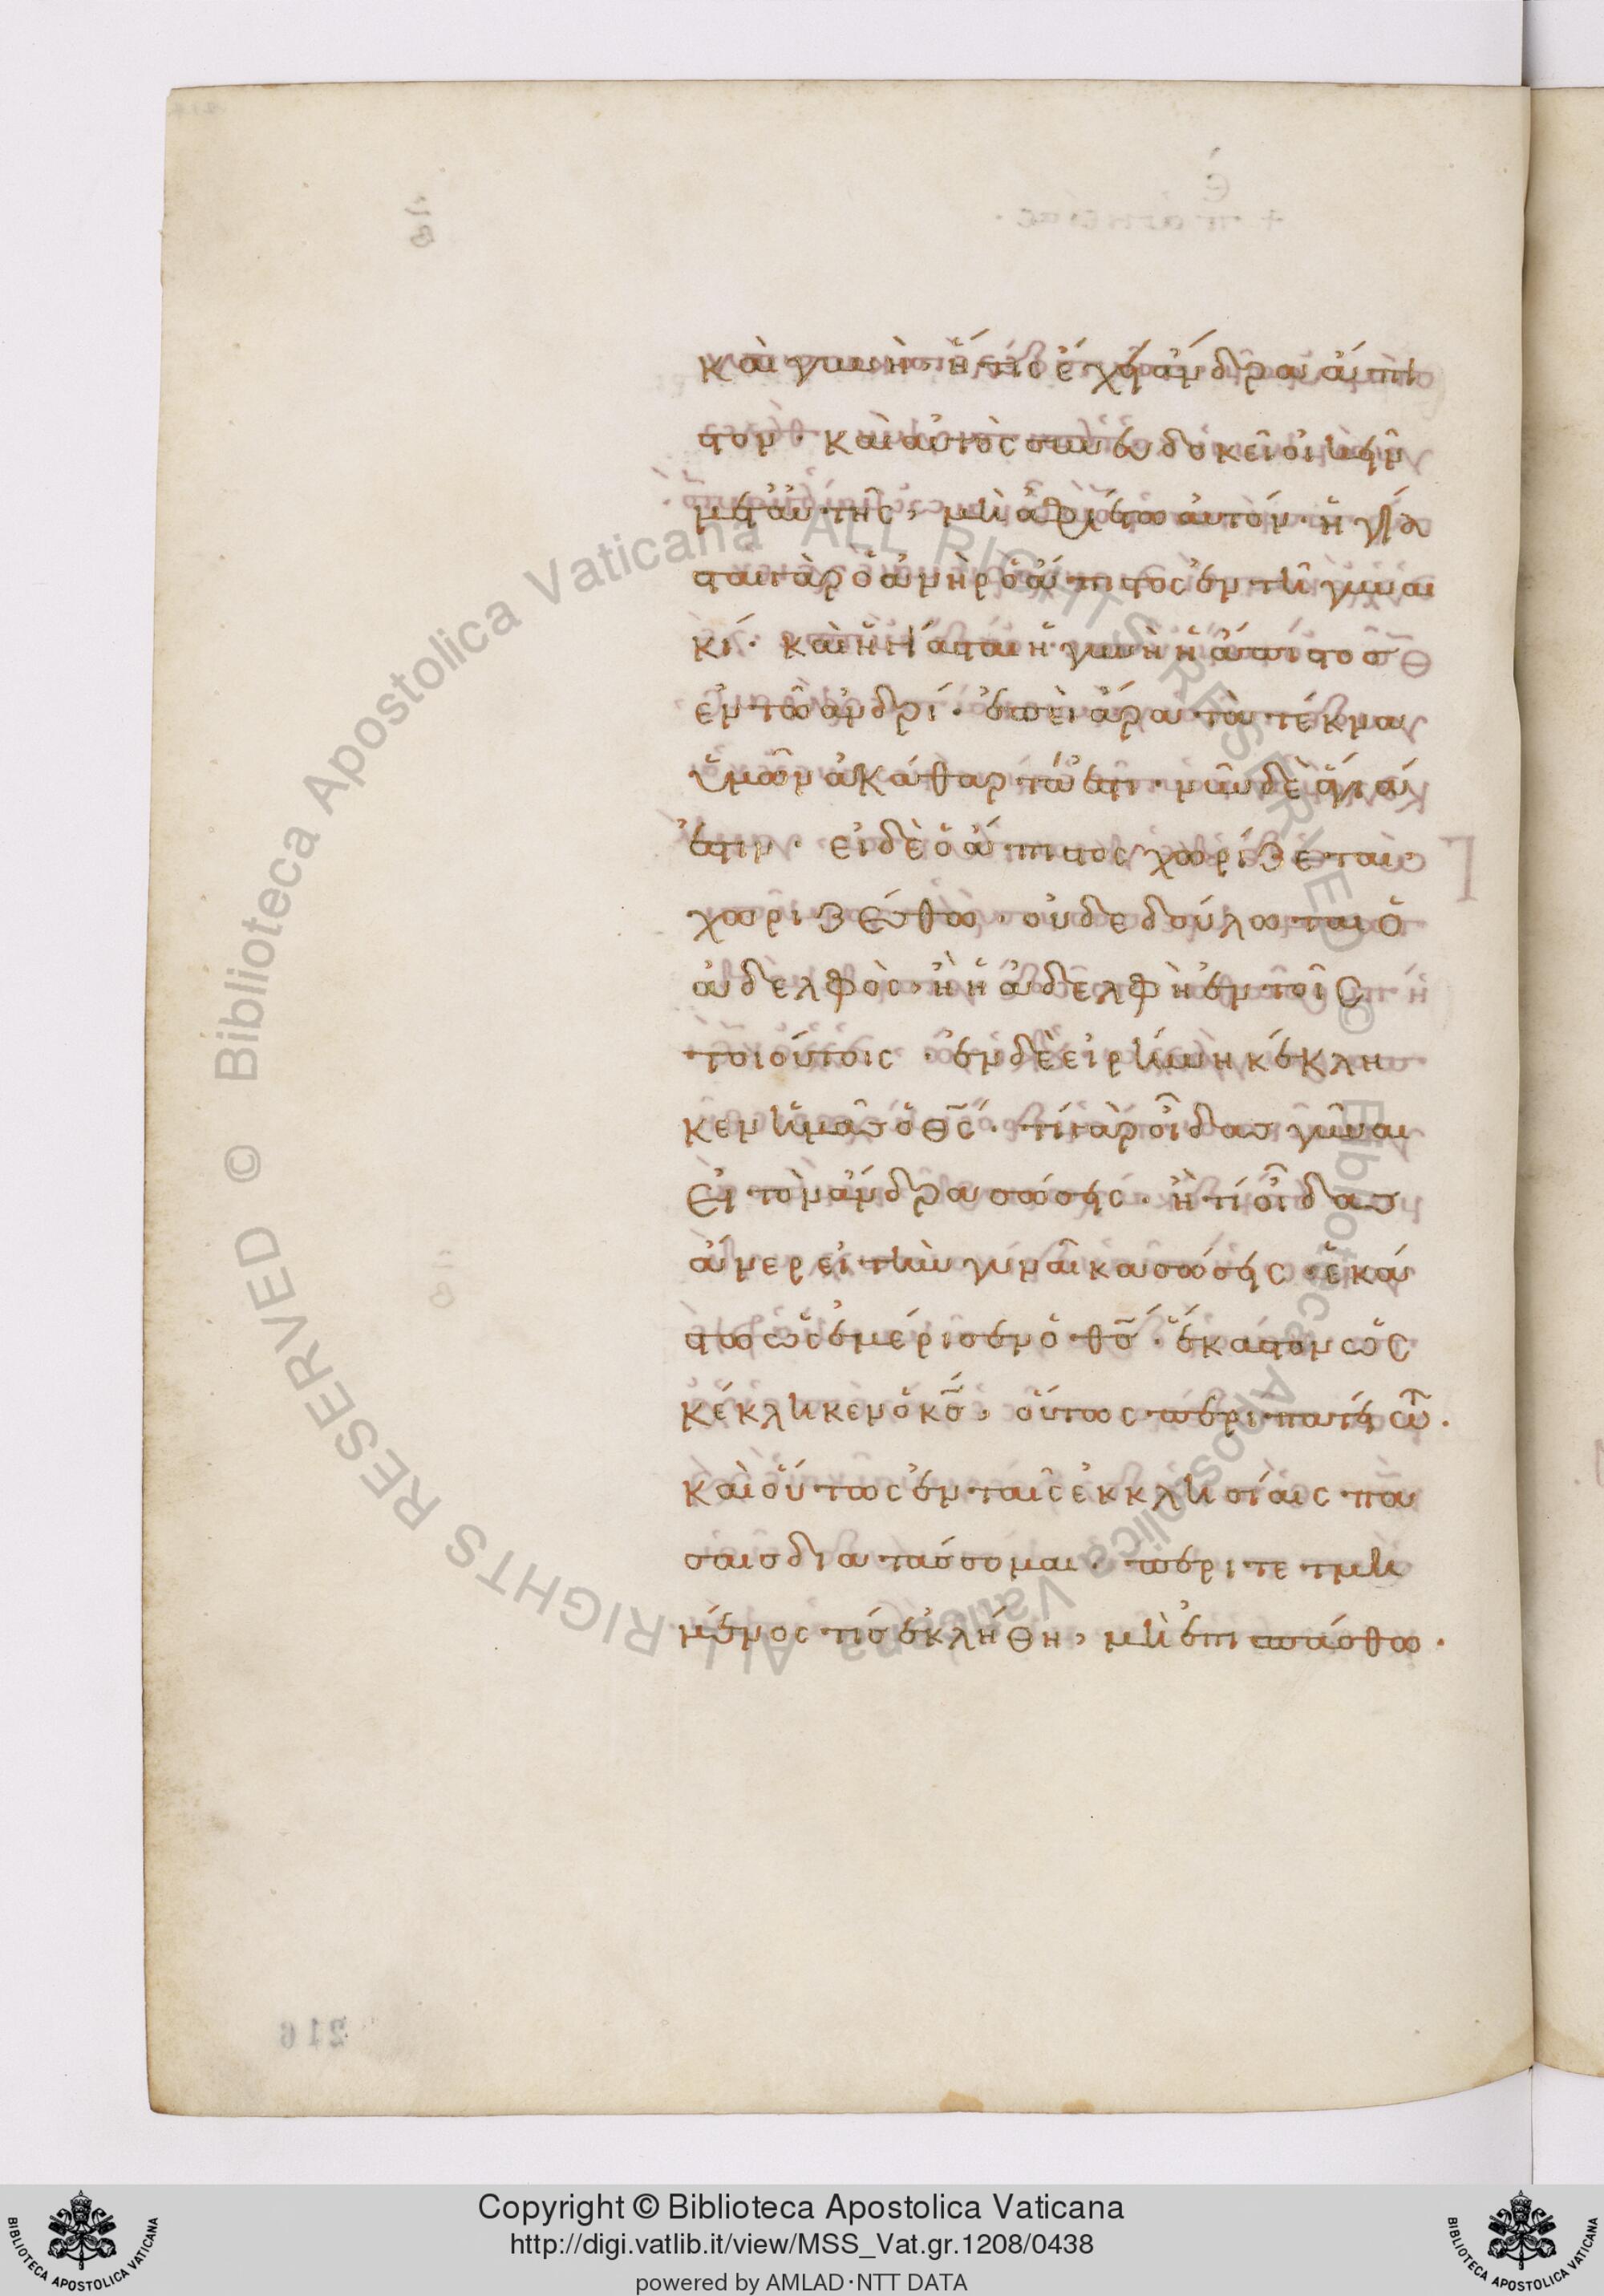 καὶ γυνὴ ἥ τις ἔχῃ ἄνδρα ἄπι
στον· καὶ αὐτὸς συνευδοκεῖ οἰκεῖν
μετ' αὐτῆς, μὴ ἀφιέτω αὐτόν· ἡγία
σται γὰρ ὁ ἀνὴρ ὁ ἄπιστος ἐν τῇ γυναι
κί· καὶ ἡγίασται ἡ γυνὴ ἡ ἄπιστος
ἐν τῶ ἀνδρί· ἐπεὶ ἄρα τὰ τέκνα
ὑμῶν ἀκάθαρτά ἐστι· νῦν δὲ ἅγιά
ἐστιν· εἰ δὲ ὁ ἄπιστος χωρίζεται·
χωριζέσθω· οὐ δεδούλωται ὁ
ἀδελφὸς· ἢ ἡ ἀδελφὴ ἐν τοῖς
τοιούτοις· ἐν δὲ εἰρήνη κέκλη
κεν ἡμᾶς ὁ θς̄· τί γὰρ οἶδας γύναι
εἰ τὸν ἄνδρα σώσεις· ἢ τί οἶδας
ἄνερ εἰ τὴν γυναῖκα σώσεις· ἑκά
στω ὡς ἐμέρισεν ὁ θς̄· ἕκαστον ὡς
κέκληκεν ὁ κς̄, οὕτως περιπατείτω·
καὶ οὕτως ἐν ταῖς ἐκκλησίαις πά
σαις διατάσσομαι· περιτετμη
μένος τίς ἐκλήθη, μὴ ἐπισπάσθω·
216
Copyright © Biblioteca Apostolica Vaticana
http://digi.vatlib.it/view/MSS_Vat.gr.1208/0438
powered by AMLAD·NTT DATA
BIBLIOTECA APOSTOLICA VATICANA
BIBLIOTECA APOSTOLICA VATICANA
© Biblioteca Apostolica Vaticana ALL RIGHTS RESERVED © Biblioteca Apostolica Vaticana ALL RIGHTS RESERVED